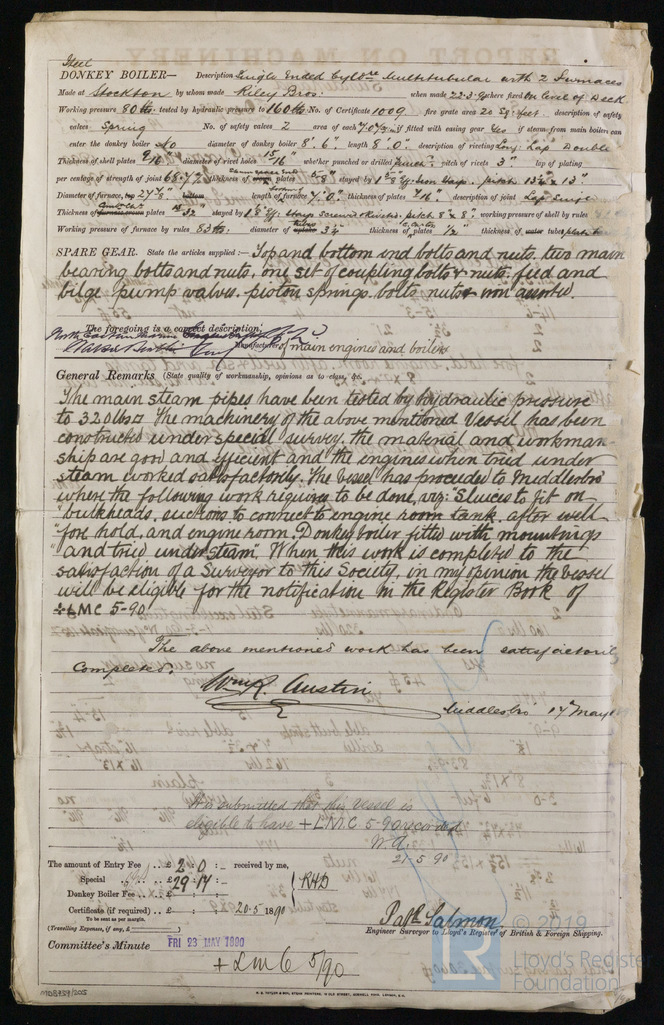 Steel
DONKEY BOILER— Description Single Ended Cyldrical Multitubular with 2 Furnaces
Made at Stockton by whom made Riley Bros. when made 22.3.90 where fixed On level of Deck
Working pressure 80 lbs tested by hydraulic pressure to 160 lbs No. of Certificate 1009 fire grate area 20 sq. feet description of safety
valves Spring No. of safety valves 2 area of each 7.07 if fitted with easing gear Yes if steam from main boilers can
enter the donkey boiler No diameter of donkey boiler 8'. 6" length 8'. 0" description of riveting Long. Lap Double
Thickness of shell plates 9/16" diameter of rivet holes 15/16" whether punched or drilled punch. pitch of rivets 3" lap of plating
per centage of strength of joint 68.7% plates 5/8" stayed by 1 5/8
Diameter of furnace, top 27 5/8" length of furnace 7'. 0" thickness of plates 7/16" description of joint Lap Single
Thickness of plates 15/32 stayed by 1 1/8 stays screwed & pitch 8" x 8" working pressure of shell by rules
Working pressure of furnace by rules 83 lbs. diameter of 3 1/4 thickness of plates 1/2" thickness of water tubes
SPARE GEAR. State the articles supplied:— Top and bottom end bolts and nuts, two main
bearing bolts and nuts, one set of coupling bolts & nuts, feed and
bilge pump valves. piston springs. bolts nuts & iron assorted.
The foregoing is a correct description,
Manufacturer of main engines and boilers
General Remarks (State quality of workmanship, opinions as to class, &c.
The main steam pipes have been tested by hydraulic pressure
to 320 lbs □ The machinery of the above mentioned Vessel has been
constructed under special survey. the material and workman-
ship are good and efficient and the engines when tried under
steam worked satisfactorily. The vessel has proceeded to Middlesbro'
where the following work requires to be done, viz: Sluices to fit on
bulkheads, suctions to connect to engine room tank, after well
fore hold, and engine room, Donkey boiler fitted with mountings
"and tried under steam". When this work is completed to the
satisfaction of a Surveyor to this Society, in my opinion the vessel
will be eligible for the notification in the Register Book of
+LMC 5-90
The above mentioned work has been satisfactorily
Completed.
Wm R. Austin
Middlesbro' 17th May
It is submitted that this Vessel is
eligible to have +L.M.C. 5-90 recorded
21.5.90
The amount of Entry Fee .. £ 2 : 0 : - received by me,
Special .. £ 29 : 14 : -
Donkey Boiler Fee .. £ : : RHD
Certificate (if required) .. £ : : 20.5.1890
To be sent as per margin.
(Travelling Expenses, if any, £ )
Salmon
Engineer Surveyor to Lloyd's Register of British & Foreign Shipping.
Committee's Minute FRI 23 MAY 1890
+LMC 5/90
© 2019
LR
Lloyd's Register
Foundation